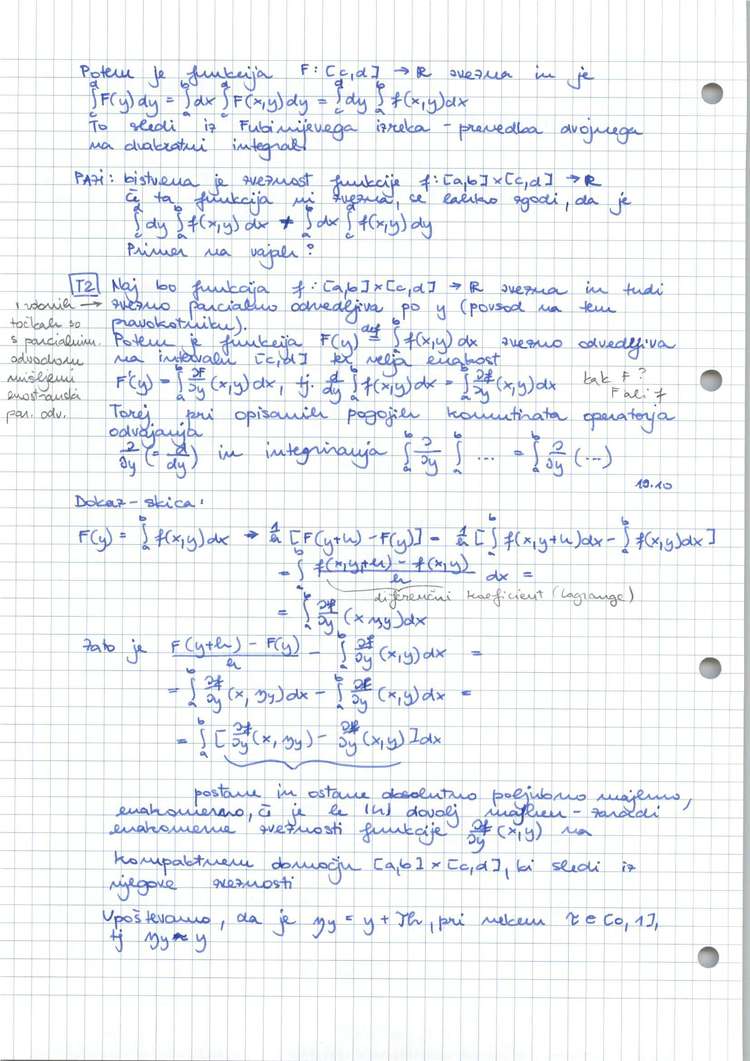 Potem je funkcija F: [c,d] → ℝ zvezna in je
∫_c^d F(y) dy = ∫_a^b dx ∫_c^d F(x,y) dy = ∫_c^d dy ∫_a^b f(x,y) dx
To sledi iz Fubinijevega izreka - prevedba dvojnega
na dvakratni integral
PAZI: bistvena je zveznost funkcije f: [a,b] × [c,d] → ℝ
Če ta funkcija ni zvezna, se lahko zgodi, da je
∫_c^d dy ∫_a^b f(x,y) dx ≠ ∫_a^b dx ∫_c^d f(x,y) dy
Primer na vajah?
T2 Naj bo funkcija f: [a,b] × [c,d] → ℝ zvezna in tudi
zvezno parcialno odvedljiva po y (povsod na tem
pravokotniku).
v robnih →
točkah so
s parcialnim
odvodom
mišljeni
enostranski
par. odv.
Potem je funkcija F(y) def= ∫_a^b f(x,y) dx zvezno odvedljiva
na intervalu [c,d] ter velja enakost
F'(y) = ∫_a^b ∂f/∂y (x,y) dx, tj. d/dy ∫_a^b f(x,y) dx = ∫_a^b ∂f/∂y (x,y) dx
kak F?
F ali f
Torej pri opisanih pogojih komutirata operatorja
odvajanja
∂/∂y (= d/dy) in integriranja ∫_a^b ∂/∂y ∫_a^b ... = ∫_a^b ∂/∂y (...)
19.10
Dokaz - skica:
F(y) = ∫_a^b f(x,y) dx → 1/h [F(y+h) - F(y)] = 1/h [∫_a^b f(x,y+h) dx - ∫_a^b f(x,y) dx]
= ∫_a^b (f(x,y+h) - f(x,y))/h dx =
diferenčni koeficient (Lagrange)
= ∫_a^b ∂f/∂y (x, ηy) dx
Zato je (F(y+h) - F(y))/h - ∫_a^b ∂f/∂y (x,y) dx =
= ∫_a^b ∂f/∂y (x, ηy) dx - ∫_a^b ∂f/∂y (x,y) dx =
= ∫_a^b [∂f/∂y (x, ηy) - ∂f/∂y (x,y)] dx
postane in ostane absolutno poljubno majhno,
enakomerno, če je le |h| dovolj majhen - zaradi
enakomerne zveznosti funkcije ∂f/∂y (x,y) na
kompaktnem območju [a,b] × [c,d], ki sledi iz
njegove zveznosti
Upoštevamo, da je ηy = y + τh, pri nekem τ ∈ [0,1],
tj ηy ≈ y